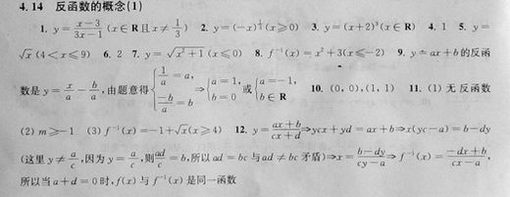 4.14 反函数的概念(1)
1. y=\frac{x-3}{3x-1}(x∈R且x≠\frac{1}{3}) 2. y=(-x)^{\frac{1}{4}}(x≥0) 3. y=(x+2)³(x∈R) 4. 1 5. y=
√x(4<x≤9) 6. 2 7. y=√(x²+1)(x≤0) 8. f⁻¹(x)=x²+3(x≤-2) 9. y=ax+b的反函
数是y=\frac{x}{a}-\frac{b}{a},由题意得{\frac{1}{a}=a, \frac{-b}{a}=b⇒{a=1, b=0或{a=-1, b∈R 10. (0,0),(1,1) 11. (1)无反函数
(2) m≥-1 (3) f⁻¹(x)=-1+√x(x≥4) 12. y=\frac{ax+b}{cx+d}⇒ycx+yd=ax+b⇒x(yc-a)=b-dy
(这里y≠\frac{a}{c},因为y=\frac{a}{c},则\frac{ad}{c}=b,所以ad=bc与ad≠bc矛盾)⇒x=\frac{b-dy}{cy-a}⇒f⁻¹(x)=\frac{-dx+b}{cx-a},
所以当a+d=0时,f(x)与f⁻¹(x)是同一函数